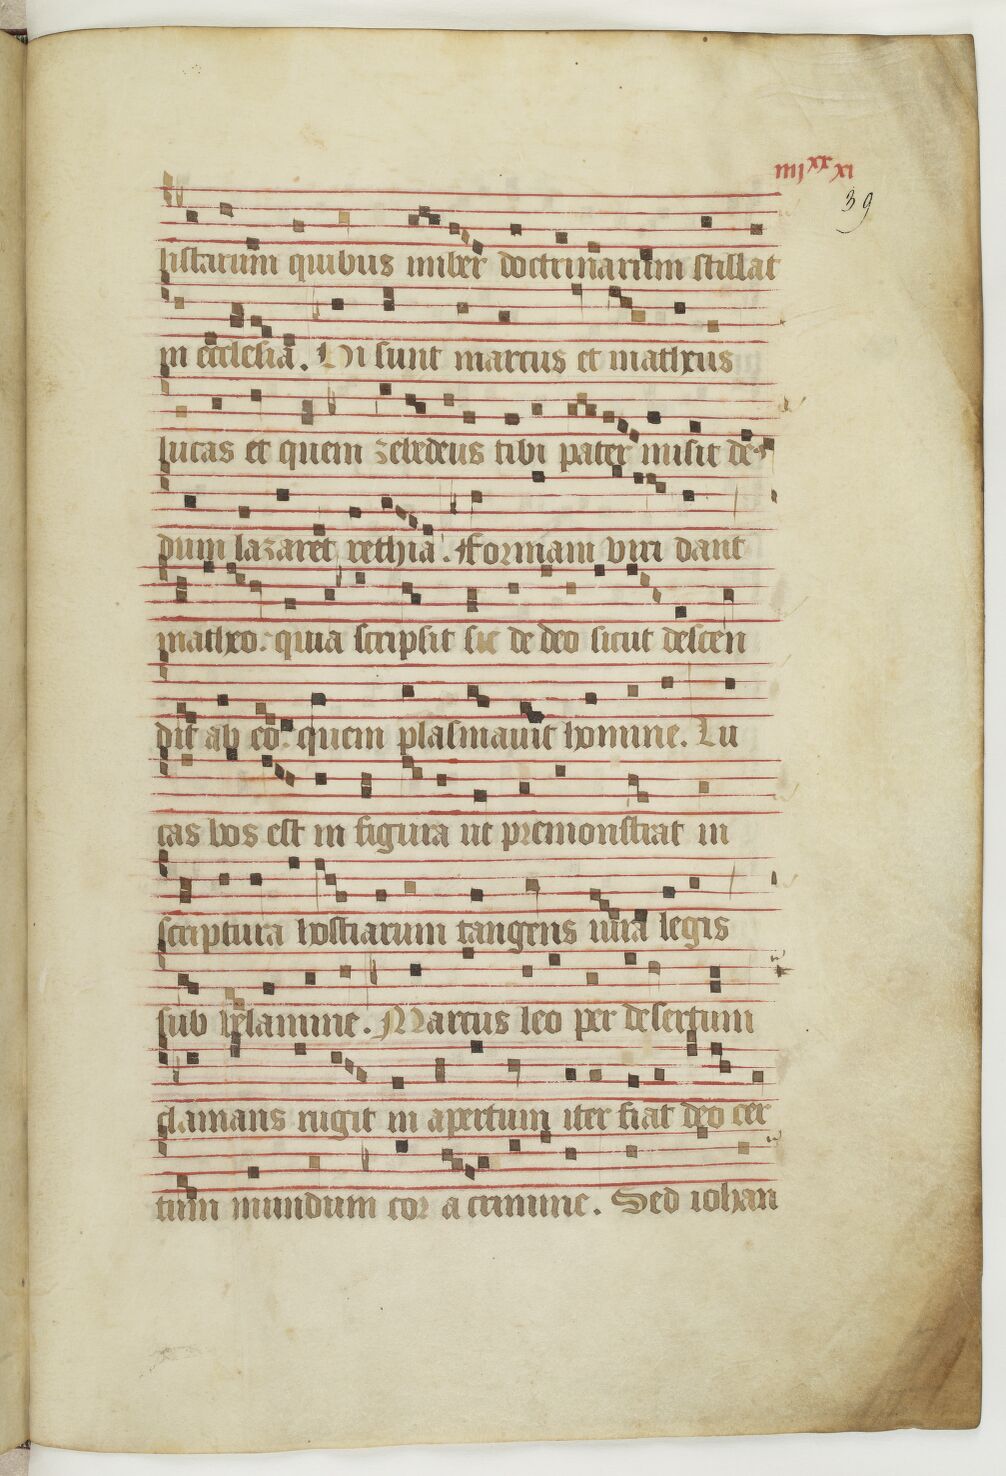 iiijxx xi
39
listarum quibus imber doctrinarum stillat
in ecclesia. Hi sunt marcus et matheus
lucas et quem zebedeus tibi pater misit de
dum lazaret rethia. Formam viri dant
matheo. quia scripsit sic de deo sicut descen
dit ab eo. quem plasmauit homine. Lu
cas bos est in figura ut premonstrat in
scriptura hostiarum tangens iura legis
sub velamine. Marcus leo per desertum
clamans rugit in apertum iter fiat deo cer
tum mundum cor a crimine. Sed iohan